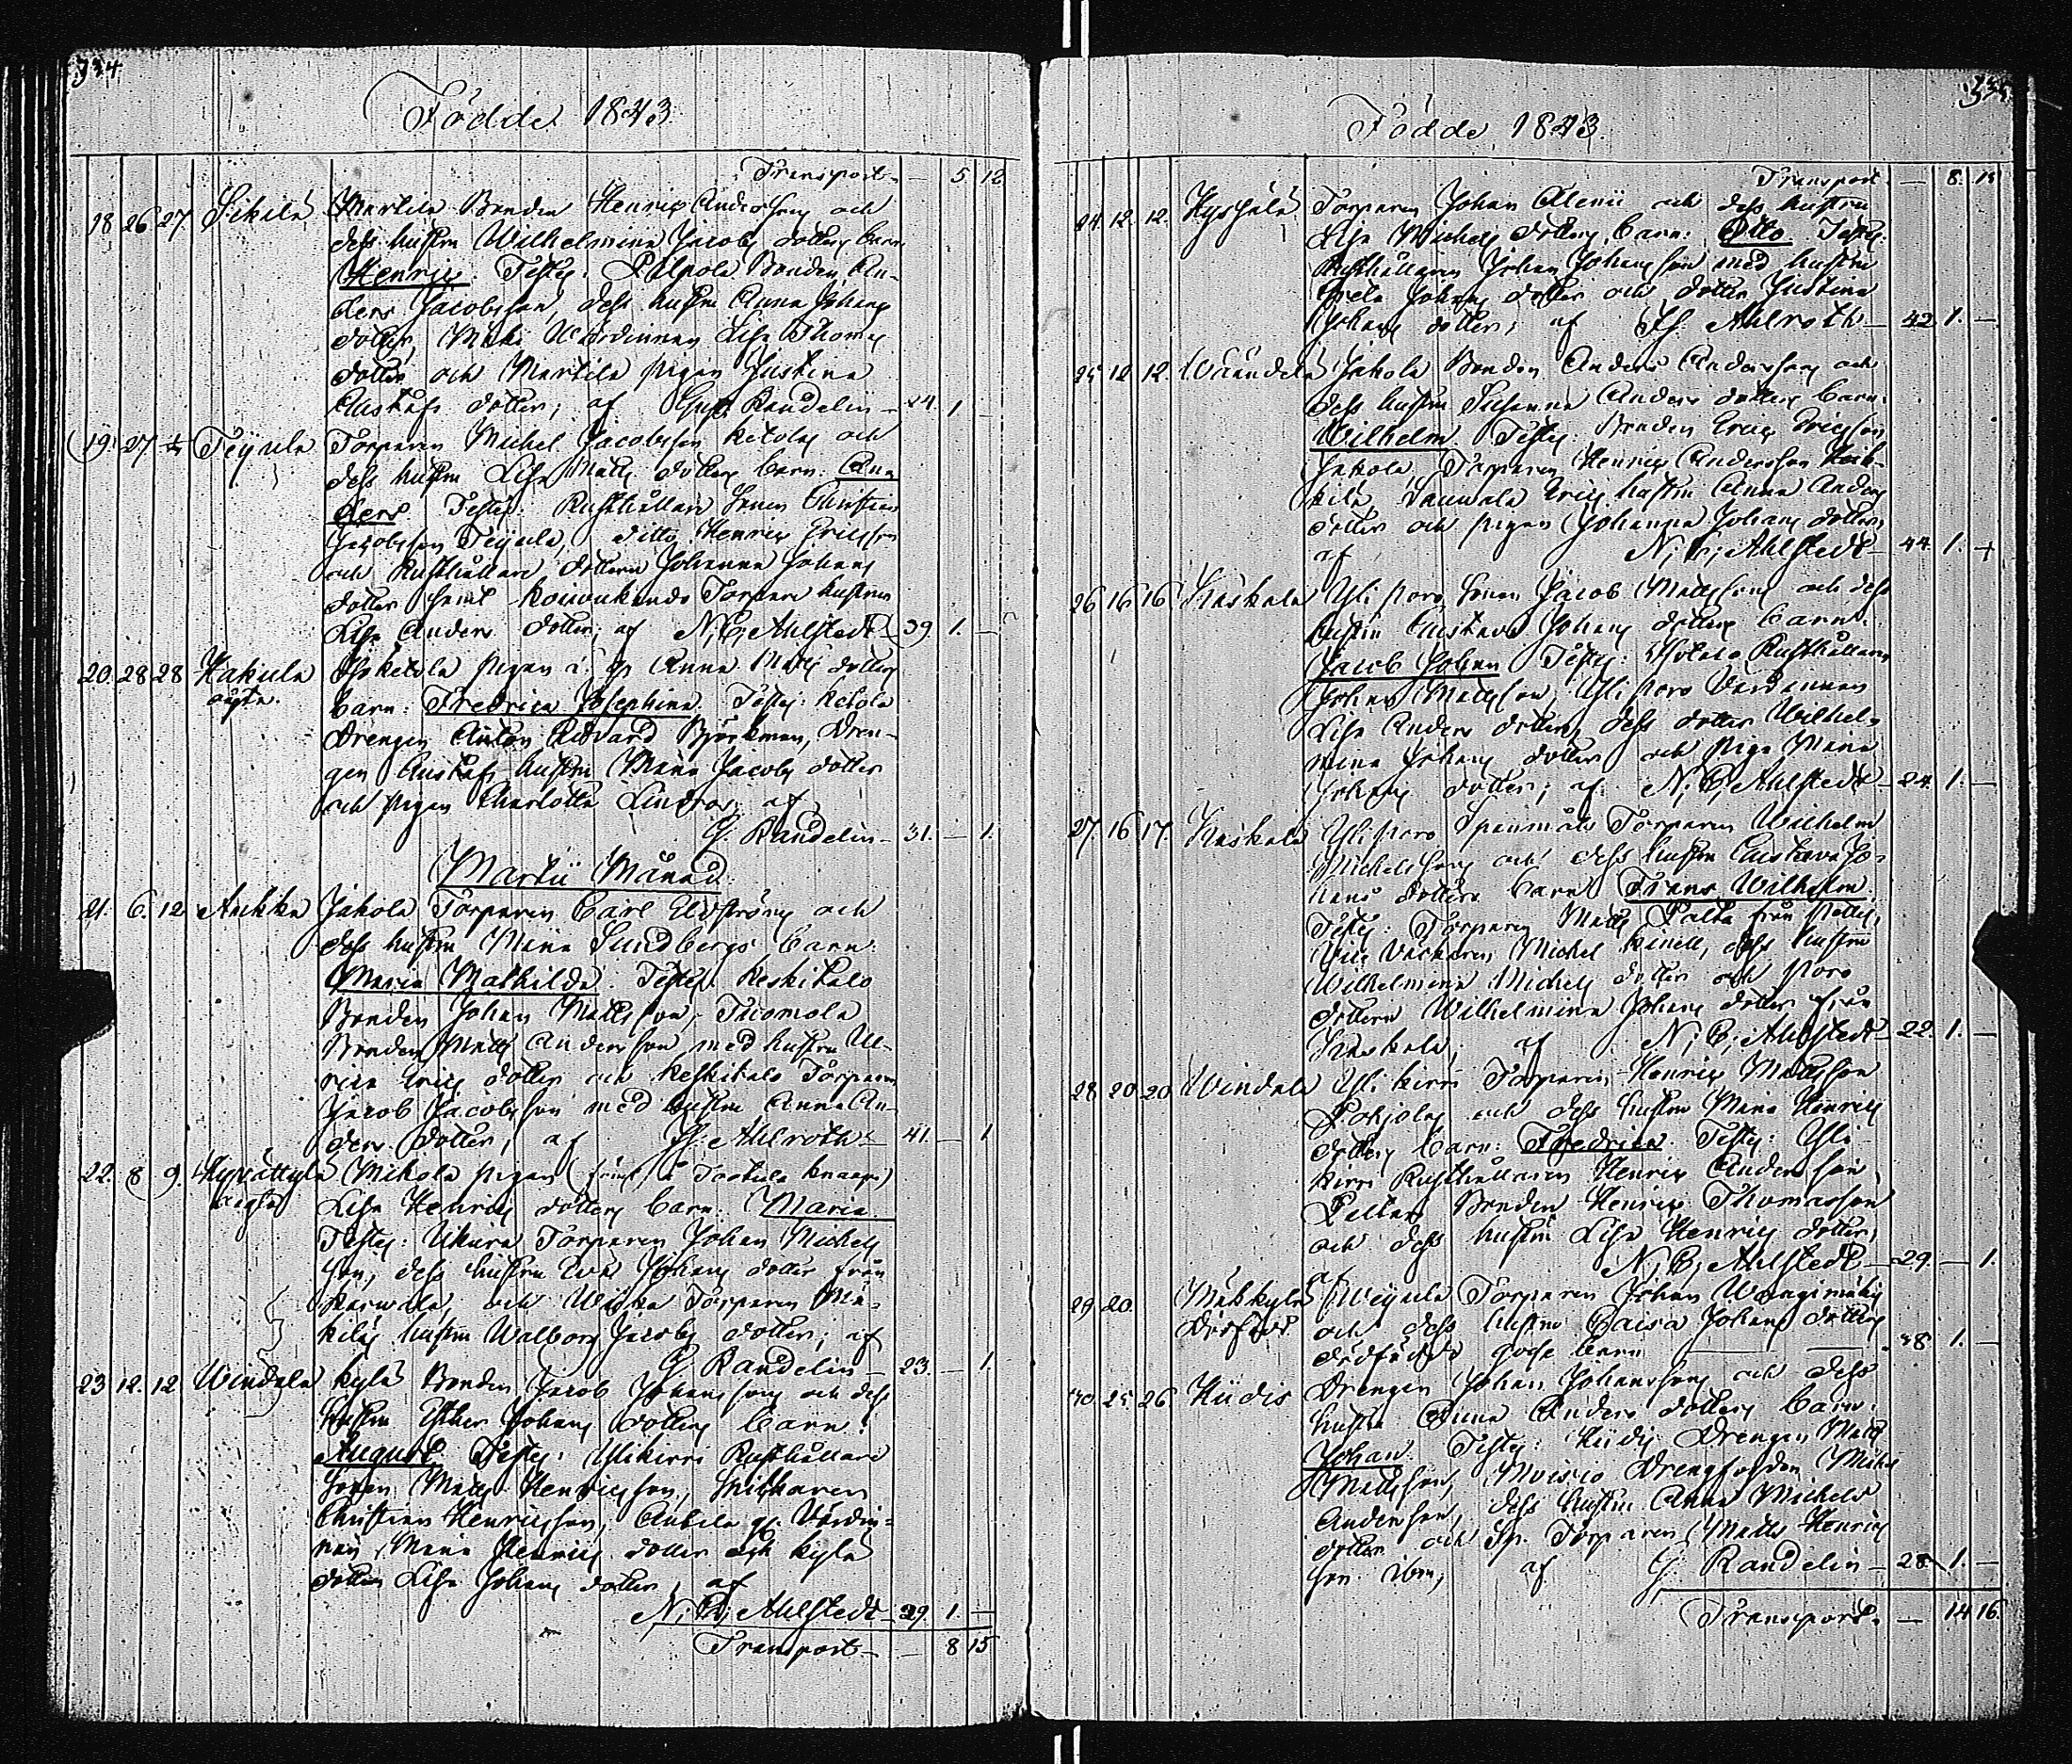 334
Födde 1843.
Transport — 5 12
18 26 27 Sikilä Martila Bonden Henric Anderssons och
dess hustru Wilhelmina Jacobs dotters barn
Henric. Testes: Pilpola Bonden An-
ders Jacobsson, dess hustru Anna Johans
dotter, Mäki Wärdinnan Lisa Thomas
dotter och Martila pigan Justina
Gustafs dotter; af Gust. Randelin — 24. 1 —
19. 27 Teijula Torparen Michel Jacobsson Ketolas och
dess hustru Lisa Matts dotters barn: An-
ders. Testes: Rusthållare Sonen Christian
Jacobsson Teijula, ditto Henric Ericsson
och Rusthållare dottern Johanna Johans
dotter samt Torpare hustrun
Lisa Anders dotter; af N. C. Ahlstedt — 39. 1. —
20. 28 28 Hakula Ketola pigan Anna Matts dotters
oägta. barn: Fredrica Josephina. Testes: Ketola
Drengen Anton Edvard Björkman, Dren-
gen Gustafs hustru Maria Jacobs dotter
och pigan Charlotta Lindroos; af
G. Randelin — 31. — 1.
Martii Månad
21. 6. 12 Jakola Torparen Carl Elvströms och
dess hustru Maria Sundbergs barn:
Maria Mathilda. Testes: Keskitalo
Bonden Johan Mattsson, Tuomola
Bonden Matts Andersson med hustru Ul-
rica Erics dotter och Keskitalo Torparen
Jacob Jacobsson med hustru Anna An-
ders dotter; af Ahlroth — 41. — 1
22. 8 9. Mikola pigan
Lisa Henrics dotters barn: Maria.
Testes: Ukura Torparen Johan Michels
son, dess hustru Eva Johans dotter från
och Torparen Mä-
kiläs hustru Walborg Jacobs dotter; af
G. Randelin — 23. — 1.
23 12. 12 Windala Kylä Bonden Jacob Johanssons och dess
hustru Esther Johans dotters barn:
August. Testes: Ylikirri Rusthållare
Sonen Matts Henricsson,
Christian Henricsson, Wärdin-
nan Maria Henrics dotter och Kylä
dottren Lisa Johans dotter, af
N. C. Ahlstedt — 29. 1. —
Transport — — 8 15
335
Födde 1843.
Transport — 8. 15
24. 12. 12. Torparen Johan Alenii och dess hustru
Lisa Michels dotters barn: Otto. Testes:
Rusthållaren Johan Johansson med hustru
Johans dotter och dotter Justina
Johans dotter; af Ahlroth — 42. 1. —
25 12 12. Jakola Bonden Anders Anderssons och
dess hustru Susanna Anders dotters barn:
Wilhelm. Testes: Bonden Eric Ericsson
Jakola, Torparen Henric Andersson Heik-
kilä, Erics hustru Anna Anders
dotter och pigan Johanna Johans dotter,
af N. C. Ahlstedt — 44. 1. +
26 16 16 Kaskala Yli poro Sonen Jacob Mattssons och dess
hustru Gustava Johans dotters barn:
Jacob Johan. Testes: Rusthållaren
Johan Mattsson, Yli poro Värdinnan
Lisa Anders dotter, dess dotter Wilhel-
mina Johans dotter och piga Maria
Johans dotter; af N. C. Ahlstedt — 24. 1. —
27. 16 17. Kaskala Yli poro Spanmåls Torparen Wilhelm
Michelssons och dess hustru Gustava Jo-
hans dotters barn: Frans Wilhelm.
Testes: Torparen Matts från
Michel dess hustru
Wilhelmina Michels dotter och poro
dottren Wilhelmina Johans dotter från
Kaskala; af N. C. Ahlstedt — 22. 1. —
28 20 20 Windala Yli kirri Torparen Henric Mattsson
Pohjolas och dess hustru Maria Henrics
dotters barn: Fredrica. Testes: Yli-
kirri Rusthållaren Henric Andersson
Bonden Henric Thomasson
och dess hustru Lisa Henrics dotter,
af N. C. Ahlstedt — 29. — 1.
29 20. Mäkkylä Torparen Johan
och dess hustru Caisa Johans dotters
dödfödde gosse barn — 38 1. —
30 25 26 Hiidis Drengen Johan Johanssons och dess
hustru Anna Anders dotters barn:
Johan. Testes: Hiidis Drengen Matts
Mattsson, Moisio Michel
Andersson, dess hustru Anna Michels
dotter och Torparen Matts Henrics
son ibm, af G. Randelin — 28 1. —
Transport — — 14 16